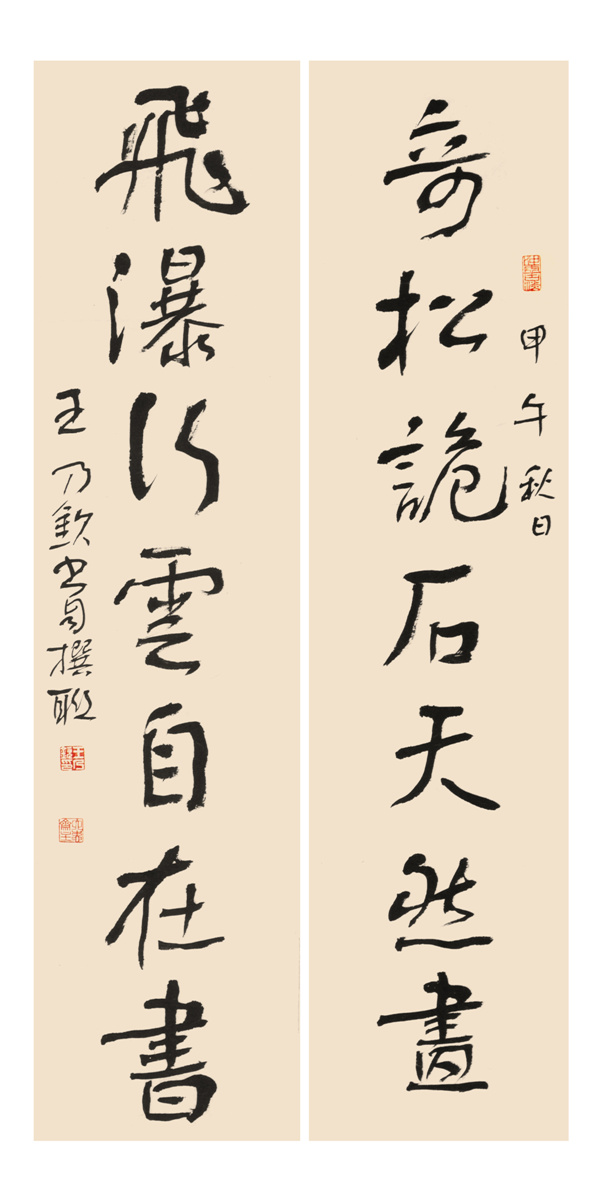 奇松詭石天然畫
甲午秋日
飛瀑行雲自在書
王乃欽書自撰聯